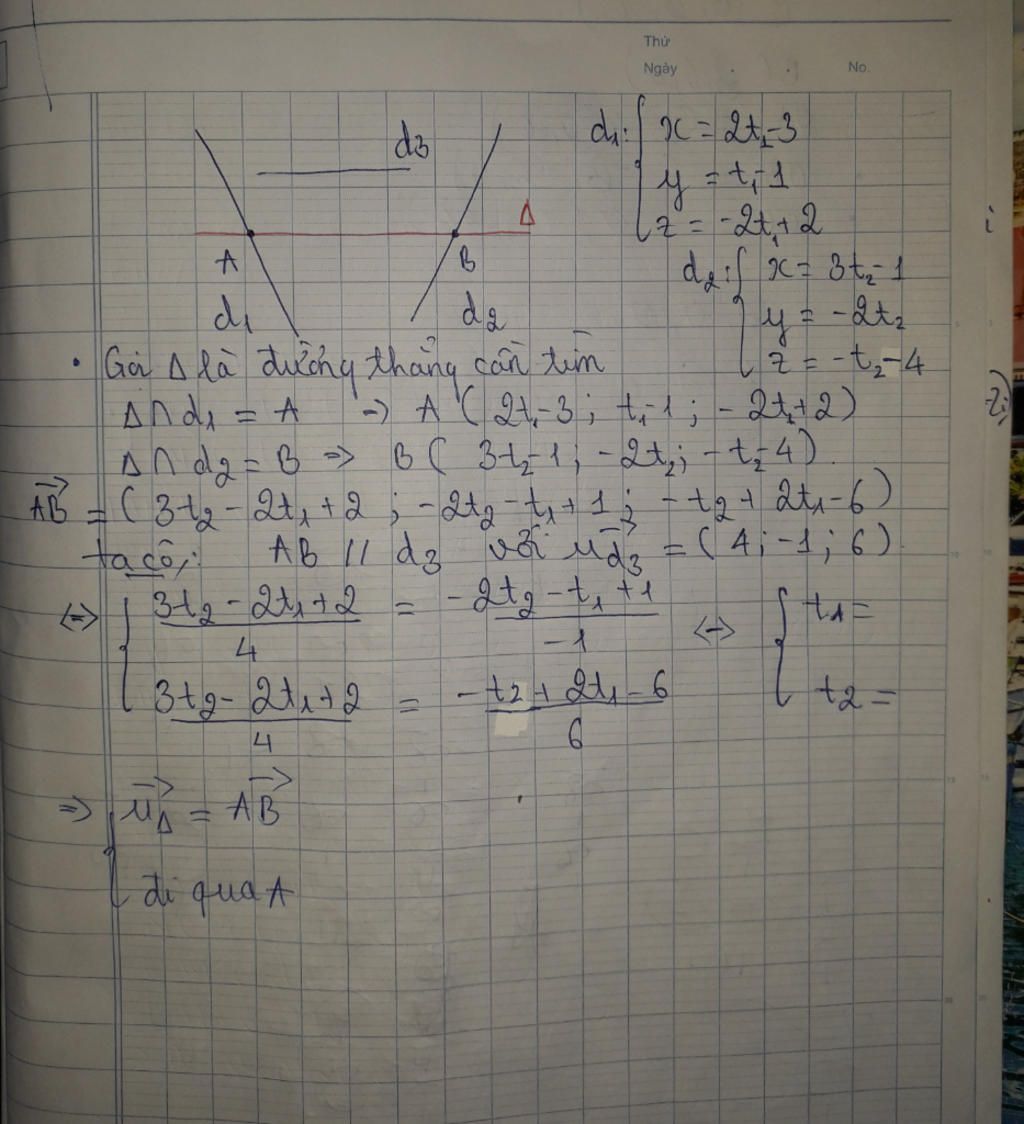 Thứ
Ngày . . No.
d3
Δ
A
B
d1
d2
d1: { x = 2t1-3
y = t1-1
z = -2t1+2
d2: { x = 3t2-1
y = -2t2
z = -t2-4
• Gọi Δ là đường thẳng cần tìm
Δ∩d1 = A → A ( 2t1-3 ; t1-1 ; -2t1+2 )
Δ∩d2 = B => B ( 3t2-1 ; -2t2 ; -t2-4 ).
AB→ = ( 3t2 - 2t1 + 2 ; -2t2 - t1 + 1 ; -t2 + 2t1 - 6 )
ta có: AB // d3 với u→d3 = ( 4 ; -1 ; 6 ).
<=> { (3t2 - 2t1 + 2)/4 = (-2t2 - t1 + 1)/-1 <-> { t1 =
(3t2 - 2t1 + 2)/4 = (-t2 + 2t1 - 6)/6 t2 =
=> { u→Δ = AB→
đi qua A
i